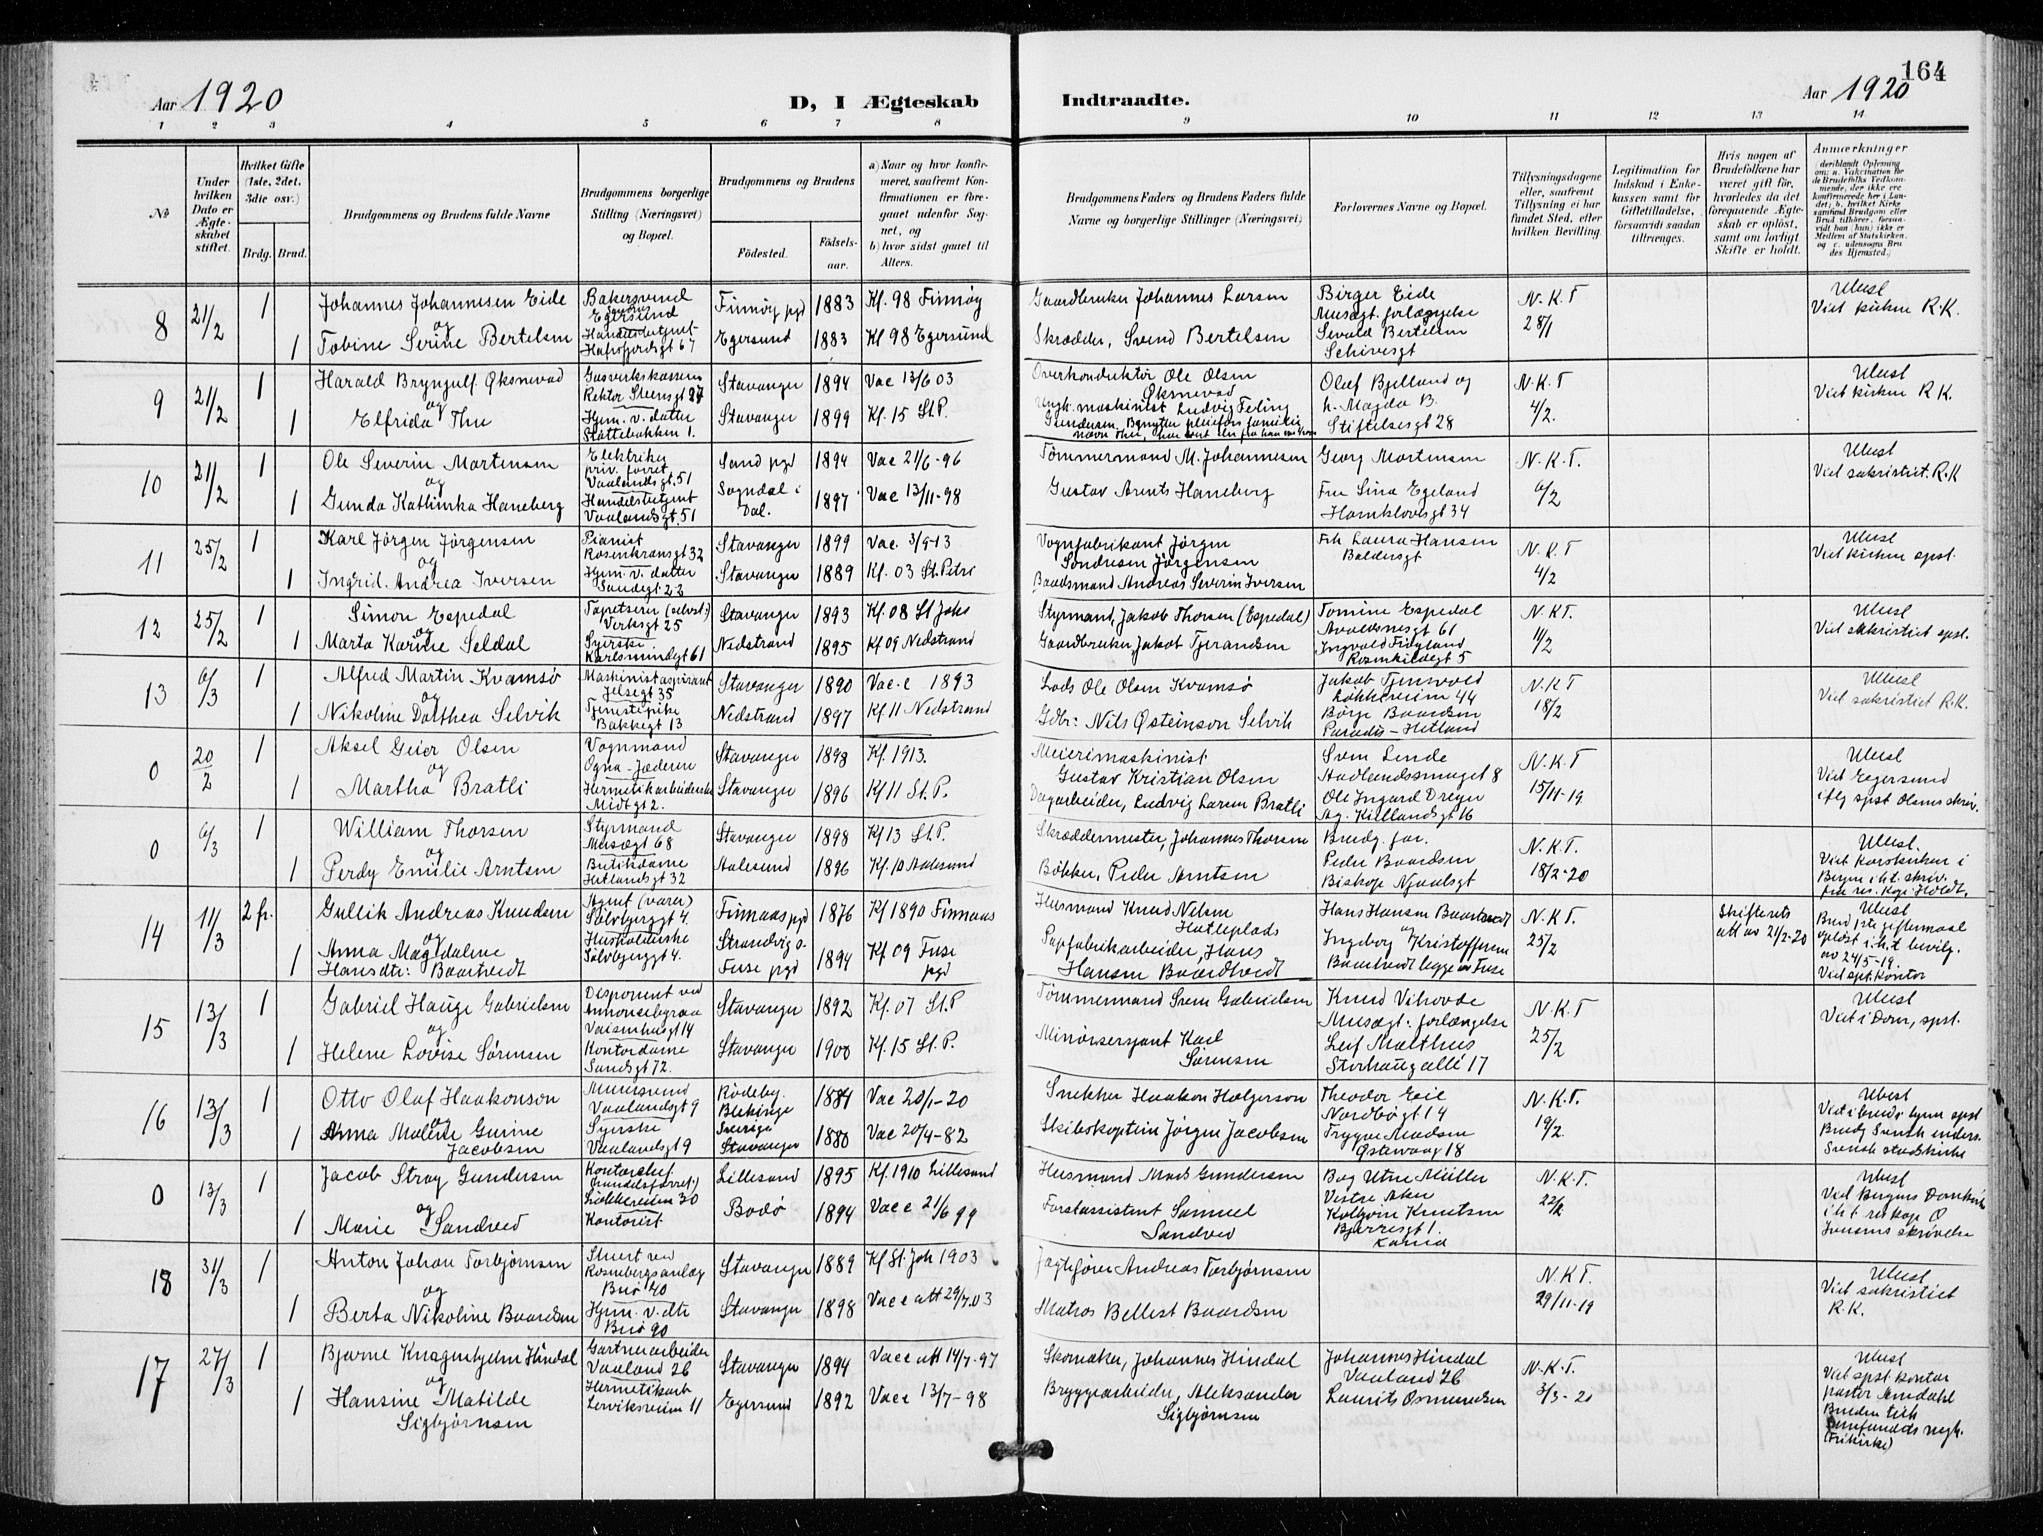 164
Aar 1920
D, I Ægteskab
Indtraadte.
Aar 1920
1 2 3 4 5 6 7 8 9 10 11 12 13 14
№
Under hvilken Dato er Ægteskabet stiftet.
Hvilket Gifte (1ste, 2det, 3die osv.)
Brdg. Brud.
Brudgommens og Brudens fulde Navne
Brudgommens borgerlige Stilling (Næringsvei) og Bopæl.
Brudgommens og Brudens
Fødested.
Fødselsaar.
a) Naar og hvor konfirmeret, saafremt Konfirmationen er foregaaet udenfor Sognet, og
b) hvor sidst gaaet til Alters.
Brudgommens Faders og Brudens Faders fulde Navne og borgerlige Stillinger (Næringsvei)
Forlovernes Navne og Bopæl.
Tillysningsdagene eller, saafremt Tillysning ei har fundet Sted, efter hvilken Bevilling.
Legitimation for Indskud i Enkekassen samt for Giftetilladelse, forsaavidt saadan tiltrænges.
Hvis nogen af Brudefolkene har været gift før, hvorledes da det foregaaende Ægteskab er opløst, samt om lovligt Skifte er holdt.
Anmærkninger
(deriblandt Oplysning om: a. Vaccination for de Brudefolks Vedkommende, der ikke ere konfirmerede her i Landet; b. hvilket Kirkesamfund Brudgom eller Brud tilhører, forsaavidt han (hun) ikke er Medlem af Statskirken, og c. udensogns Brudes Hjemsted.)
8 21/2 1 Johannes Johannesen Eide Bakersvend Egersund Finnøy pgd 1883 Kf. 98 Finnøy Gaardbruker Johannes Larsen Birger Eide Musegt. forlængelse N.K.T 28/1 Ubest Viet kirken R.K.
og
1 Tobine Serine Bertelsen Hafrsfjordsgt 67 Egersund 1883 Kf 98 Egersund Skrædder, Svend Bertelsen Sevald Bertelsen Schivesgt
9 21/2 1 Harald Bryngulf Øksnevad Gasverkskasserer Rektor Svensgt 27 Stavanger 1894 Vac 13/6 03 Overkonduktør Ole Olsen Øksnevad Olaf Bjelland og h. Magda B. Stiftelsesgt 28 N.K.T 4/2. Ubest Viet kirken R K.
og
1 Elfrida Thu Hjm. v. datter Støttebakken 1. Stavanger 1899 Kf. 15 St.P. maskinist Ludvig Feling Gundersen
10 21/2 1 Ole Severin Martensen Elektriker priv. forret. Vaalandsgt. 51 Sand pgd 1894 Vac 21/6-96 Tømmermand M. Johannesen Georg Mortensen N.K.T. 6/2 Ubest Viet sakristiet. R.K
og
1 Gunda Kathinka Haneberg Vaalandsgt. 51 Sogndal i Dal. 1897 Vac 13/11-98 Gustav Arents Haneberg Fru Sina Egeland Hornklovesgt 34
11 25/2 1 Karl Jørgen Jørgensen Pianist Rosenkransgt 32 Stavanger 1899 Vac. 3/9-13 Vognfabrikant Jørgen Søndresen Jørgensen Frk Laura Hansen Baldersgt N.K.T 4/2 Ubest Viet kirken spst.
og
1 Ingrid Andrea Iversen Hjm. v. datter Sandsgt 22 Stavanger 1889 Kf. 03 St. Petri Baadsmand Andreas Severin Iversen
12 25/2 1 Simon Espedal Tapetserer (selvst.) Verksgt 25 Stavanger 1893 Kf. 08 St Johs Styrmand, Jakob Thorsen (Espedal) Tomine Espedal Avaldsnesgt 61 N.KT. 11/2 Ubest Viet sakristiet spst.
og
1 Marta Karine Seldal Syerske Karlsmindegt 61 Nedstrand 1895 Kf 09 Nedstrand Gaardbruker Jakob Tjerandsen Ingvald Frøyland Rosenkildegt 5
13 6/3 1 Alfred Martin Kvamsø Maskinistaspirant Jelsegt 35 Stavanger 1890 Vac. e 1893 Lods Ole Olsen Kvamsø Jakob Tjensvold Løkkeveien 44 N.K T 18/2 Ubest Viet sakristiet R.K.
og
1 Nikoline Dorthea Selvik Tjenstepike Bakkegt 13 Nedstrand 1897 Kf 11 Nedstrand Gdbr: Nils Østeinson Selvik Børge Baardsen Paradis-Hetland
0 20/2 1 Aksel Geier Olsen Vognmand Ogna-Jæderen Stavanger 1898 Kf. 1913. Meierimaskinist Gustav Kristian Olsen Sven Lende Stadlandssmuget 8 N.K.T 15/11-19 Ubest Viet Egersund iflg spst Olsens skriv.
og
1 Martha Bratli Hermetikarbeiderske Midtgt 2. Stavanger 1896 Kf 11 St. P. Dagarbeider, Ludvig Larsen Bratli Ole Ingard Dreyer Ag. Kiellandsgt 16
0 6/3 1 William Thorsen Styrmand Musegt 68 Stavanger 1898 Kf 13 St. P. Skræddermester, Johannes Thorsen Brudg. far. N.K.T. 18/2-20 Ubest. Viet Korskirken i Bergen i h.t. skriv. fra res. kap. Holdt.
og
1 Perdy Emilie Arntsen Butikdame Hetlandsgt 32 Aalesund 1896 Kf. 10 Aalesund Bøkker, Peder Arntsen Peder Baardsen Biskop Njaalsgt
14 11/3 2 fr. Gullik Andreas Knudsen Agent (varer) Sølvberggt 4. Finnaas pgd 1876 Kf 1890 Finnaas Husmand Knud Nilsen Hatleplads Hans Hansen Baartvedt N.K.T. 25/2 Skifterets att av 21/2-20 Ubest Brud 1ste giftermaal opløst i h.t. bevilg. av 24/5-19. Viet spst. Kontor
og
1 Anna Magdalene Hansdtr: Baartvedt Husholderske Sølvberggt 4. Strandvig s. Fuse pgd 1894 Kf 09 Fuse pgd Papfabrikarbeider, Hans Hansen Baardtvedt Ingeborg Kristoffersen Baartvedt begge av Fuse
15 13/3 1 Gabriel Hauge Gabrielsen Disponent ved Annonsebyraa Vaisenhusgt 14 Stavanger 1892 Kf. 07 St. P Tømmermand Sven Gabrielsen Knud Vihovde Musegt: forlængelse N.K.T 25/2 Ubest Viet i Dom, spst.
og
1 Helene Lovise Sørensen Kontordame Sandsgt 72. Stavanger 1900 Kf. 15 St. P. Minørsersjant Karl Sørensen Leif Malthus Storhaug allé 17
16 13/3 1 Otto Olaf Haakonson Murersvend Vaalandsgt 9 Rødeby. Blekinge Sverige 1884 Vac 20/1-20 Snekker Haakon Holgerson Theodor Eeie Nordbøgt 14 N.K.T. 19/2. Ubest Viet i bruds hjem spst Brudg Svensk unders. Svensk statskirke
og
1 Anna Malene Gurine Jacobsen Syerske Vaalandsgt 9 Stavanger 1880 Vac 20/4-82 Skibskaptein Jørgen Jacobsen Trygve Madsen Østervaag 18
0 13/3 1 Jacob Stray Gundersen Kontorchef (handelsforret.) Løkkeveien 30 Lillesand 1895 Kf. 1910 Lillesand Husmand Mads Gundersen Bag Utne Müller Vestre Aker N.K.T. 22/2 Ubest Viet Bergens Domkirke i h.t. res kap O Jensens skrivelse
og
1 Marie Sandved Kontorist Bodø 1894 Vac e 21/6 99 Forstassistent Samuel Sandved Kolbein Knutsen Bjerresgt 1.
18 31/3 1 Anton Johan Torbjørnsen Stuert ved Rosenbergsanlæg Brø 40 Stavanger 1889 Kf St. Joh 1903 Jagtfører Andreas Torbjørnsen N.K T. 29/11-19 Ubest Viet sakristiet R.K.
og
1 Berta Nikoline Baardsen Hjm. v. dtr Brø 90 Stavanger 1898 Vac e att 29/7.03 Matros Bellest Baardsen
17 27/3 1 Bjarne Knagenhjelm Hindal Gartnerarbeider Vaaland 26 Stavanger 1894 Vac e att 14/7-97 Skomaker, Johannes Hindal Johannes Hindal Vaaland 26 N.K.T. 3/3-20 Ubest Viet spst kontor pastor Arndahl Bruden tilh samfundds negh. (Frikirke)
og
1 Hansine Matilde Sigbjørnsen Hermetikarb Lerviksveien 11 Egersund 1892 Vac e 13/7-98 Bryggearbeider, Aleksander Sigbjørnsen Laurits Osmundsen